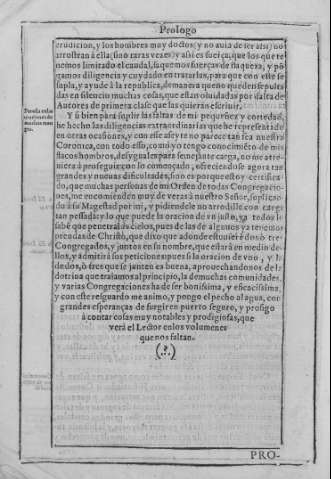 Prologo
erudicion, y los hombres muy doctos; y no auia de ser assi no
arrostran à ella (sino raras vezes) y assi es fuerça, que los que te
nemos limitado el caudal, saquemos fuerças de flaqueza, y pō
gamos diligencia y cuydado en tratarlas, para que con esto se
supla, y ayude à la republica, de manera que no queden sepulta
das en silencio muchas cosas, que estan oluidadas por falta de
Autores de primera clase que las quieran escriuir.
Y si bien para suplir las faltas de mi pequeñez y cortedad,
he hecho las diligencias extraordinarias que he representado
en otras ocasiones, y con este assy
Coronica, con todo esso, como yo tengo conocimiēto de mis
flacos hombros, desyguales para semejante carga, no me atre-
uiera à proseguir con lo començado, ofreciendose agora tan
grandes y nueuas dificultades, sino es porque estoy certifica-
do, que muchas personas de mi Orden de todas Congregacio-
nes, me encomienden muy de veras à nuestro Señor, suplican
do à su Magestad por mi, y pidiendole no arrodille con carga
tan pessada: y lo que puede la oracion de vn justo, ya todos lo
sabē que penetra los cielos, pues las de algunos ya tenemos
prendas de Christo, que dixo que adonde estuuiessē dos ò tres
Congregados, y juntos en su nombre, que estarà en medio de-
llos, y admitirà sus peticiones: pues si la oracion de vno, y la
de dos, ò tres que se junten es buena, aprouechandonos de la
dotrina que traìamos al principio, la de muchas comunidades,
y varias Congregaciones ha de ser bonissima, y eficacissima,
y con este resguardo me animo, y pongo el pecho al agua, con
grandes esperanças de surgir en puerto seguro, y prosigo
à contar cosas muy notables y prodigiosas, que
verà el Lector en los volumenes
que nos faltan.
PRO-